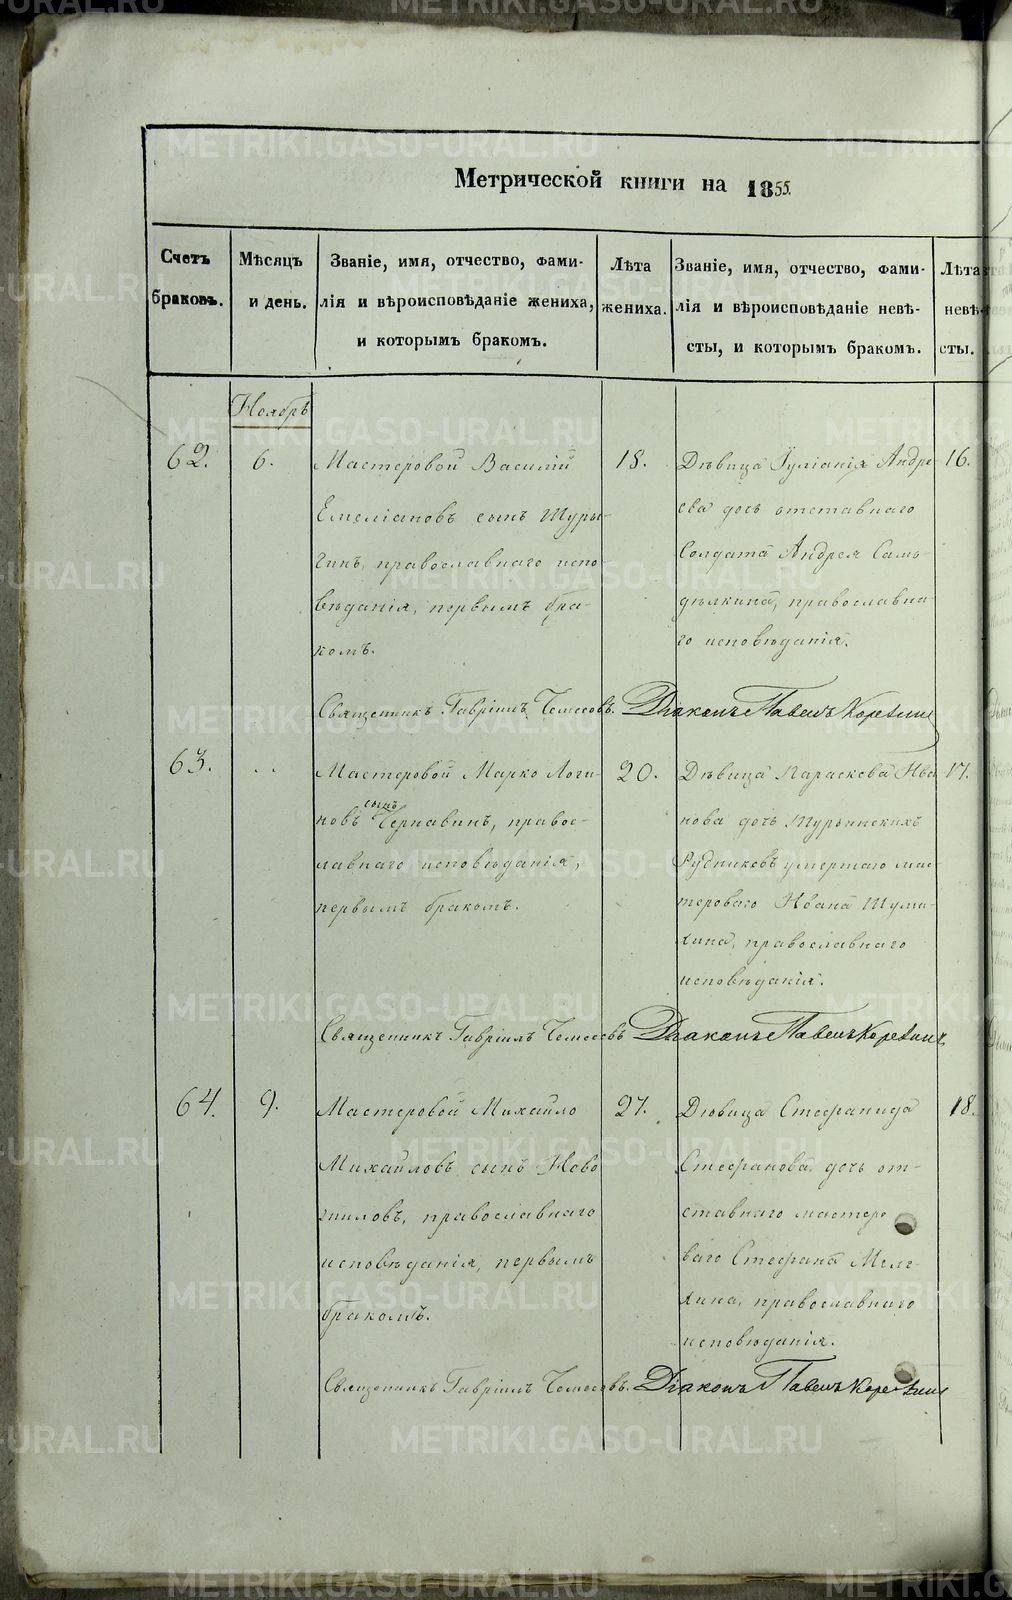 Метрической книги на 1855.
Счетъ браковъ.
Мѣсяцъ и день.
Званіе, имя, отчество, фами-
лія и вѣроисповѣданіе жениха,
и которымъ бракомъ.
Лѣта жениха.
Званіе, имя, отчество, фами-
лія и вѣроисповѣданіе невѣ-
сты, и которымъ бракомъ.
Лѣта невѣ-
сты.
Ноябрь
62.
6.
Мастеровой Василій
Емеліановъ сынъ Шуры-
гинъ, православнаго испо-
вѣданія, первымъ бра-
комъ.
18.
Дѣвица Іуліанія Андре-
ева дочь отставнаго
Солдата Андрея Само-
дѣлкина, православна-
го исповѣданія.
16.
Священникъ Гавріилъ Діаконъ Павелъ
63.
. .
Мастеровой Марко Логи-
новъ сынъ Чернавинъ, правос-
лавнаго исповѣданія,
первымъ бракомъ.
20.
Дѣвица Параскева Ива-
нова дочь Турьинскихъ
Рудниковъ умершаго мас-
тероваго Ивана Шума-
хина, православнаго
исповѣданія.
17.
Священникъ Гавріилъ Діаконъ Павелъ
64.
9.
Мастеровой Михайло
Михайловъ сынъ Ново-
шиловъ, православнаго
исповѣданія, первымъ
бракомъ.
27.
Дѣвица Стефанида
Стефанова дочь от-
ставнаго мастеро-
ваго Стефана Меле-
хина, православнаго
исповѣданія.
18.
Священникъ Гавріилъ Діаконъ Павелъ
METRIKI.GASO-URAL.RU